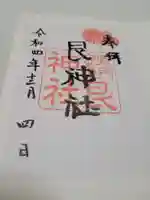 奉拝
艮神社
令和四年十二月四日